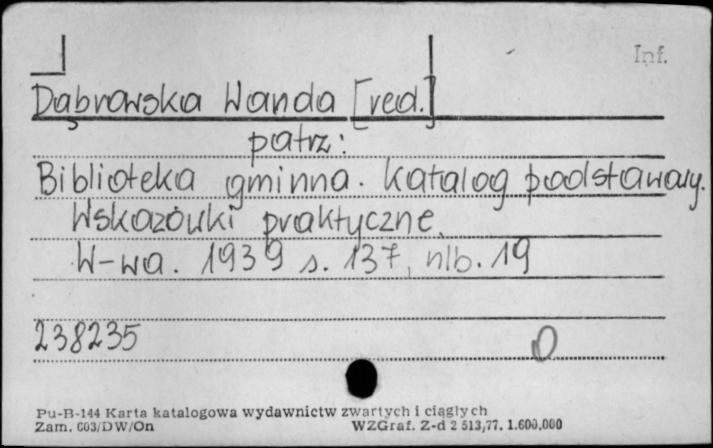 Inf.
Dąbrowska Wanda [red.]
patrz:
Biblioteka gminna. Katalog podstawowy.
Wskazówki praktyczne.
W-wa. 1939 s. 137, nlb. 19
238235 O
Pu-B-144 Karta katalogowa wydawnictw zwartych i ciągłych
Zam. 603/DW/On WZGraf. Z-d 2 513/77. 1.600,000